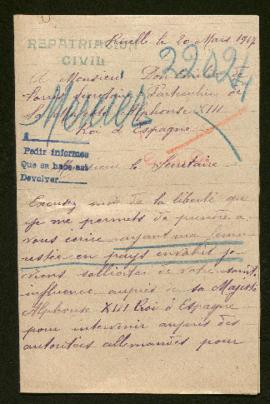 Ruelle le 20 Mars 1917
REPATRIACION
CIVIL
22024
A Monsieur Don
Secrétaire Particulier de
Sa Majesté Alphonse XIII
Roi d'Espagne
Mercier
A
Pedir informes
Que se hace así
Devolver
Monsieur le Secrétaire
Excusez moi de la liberté que
je me permets de prendre à
vous écrire ayant ma femme
restée en pays envahit je
viens solliciter de votre haute
influence auprès de sa Majesté
Alphonse XIII Roi d'Espagne
pour intervenir auprès des
autorités allemandes pour